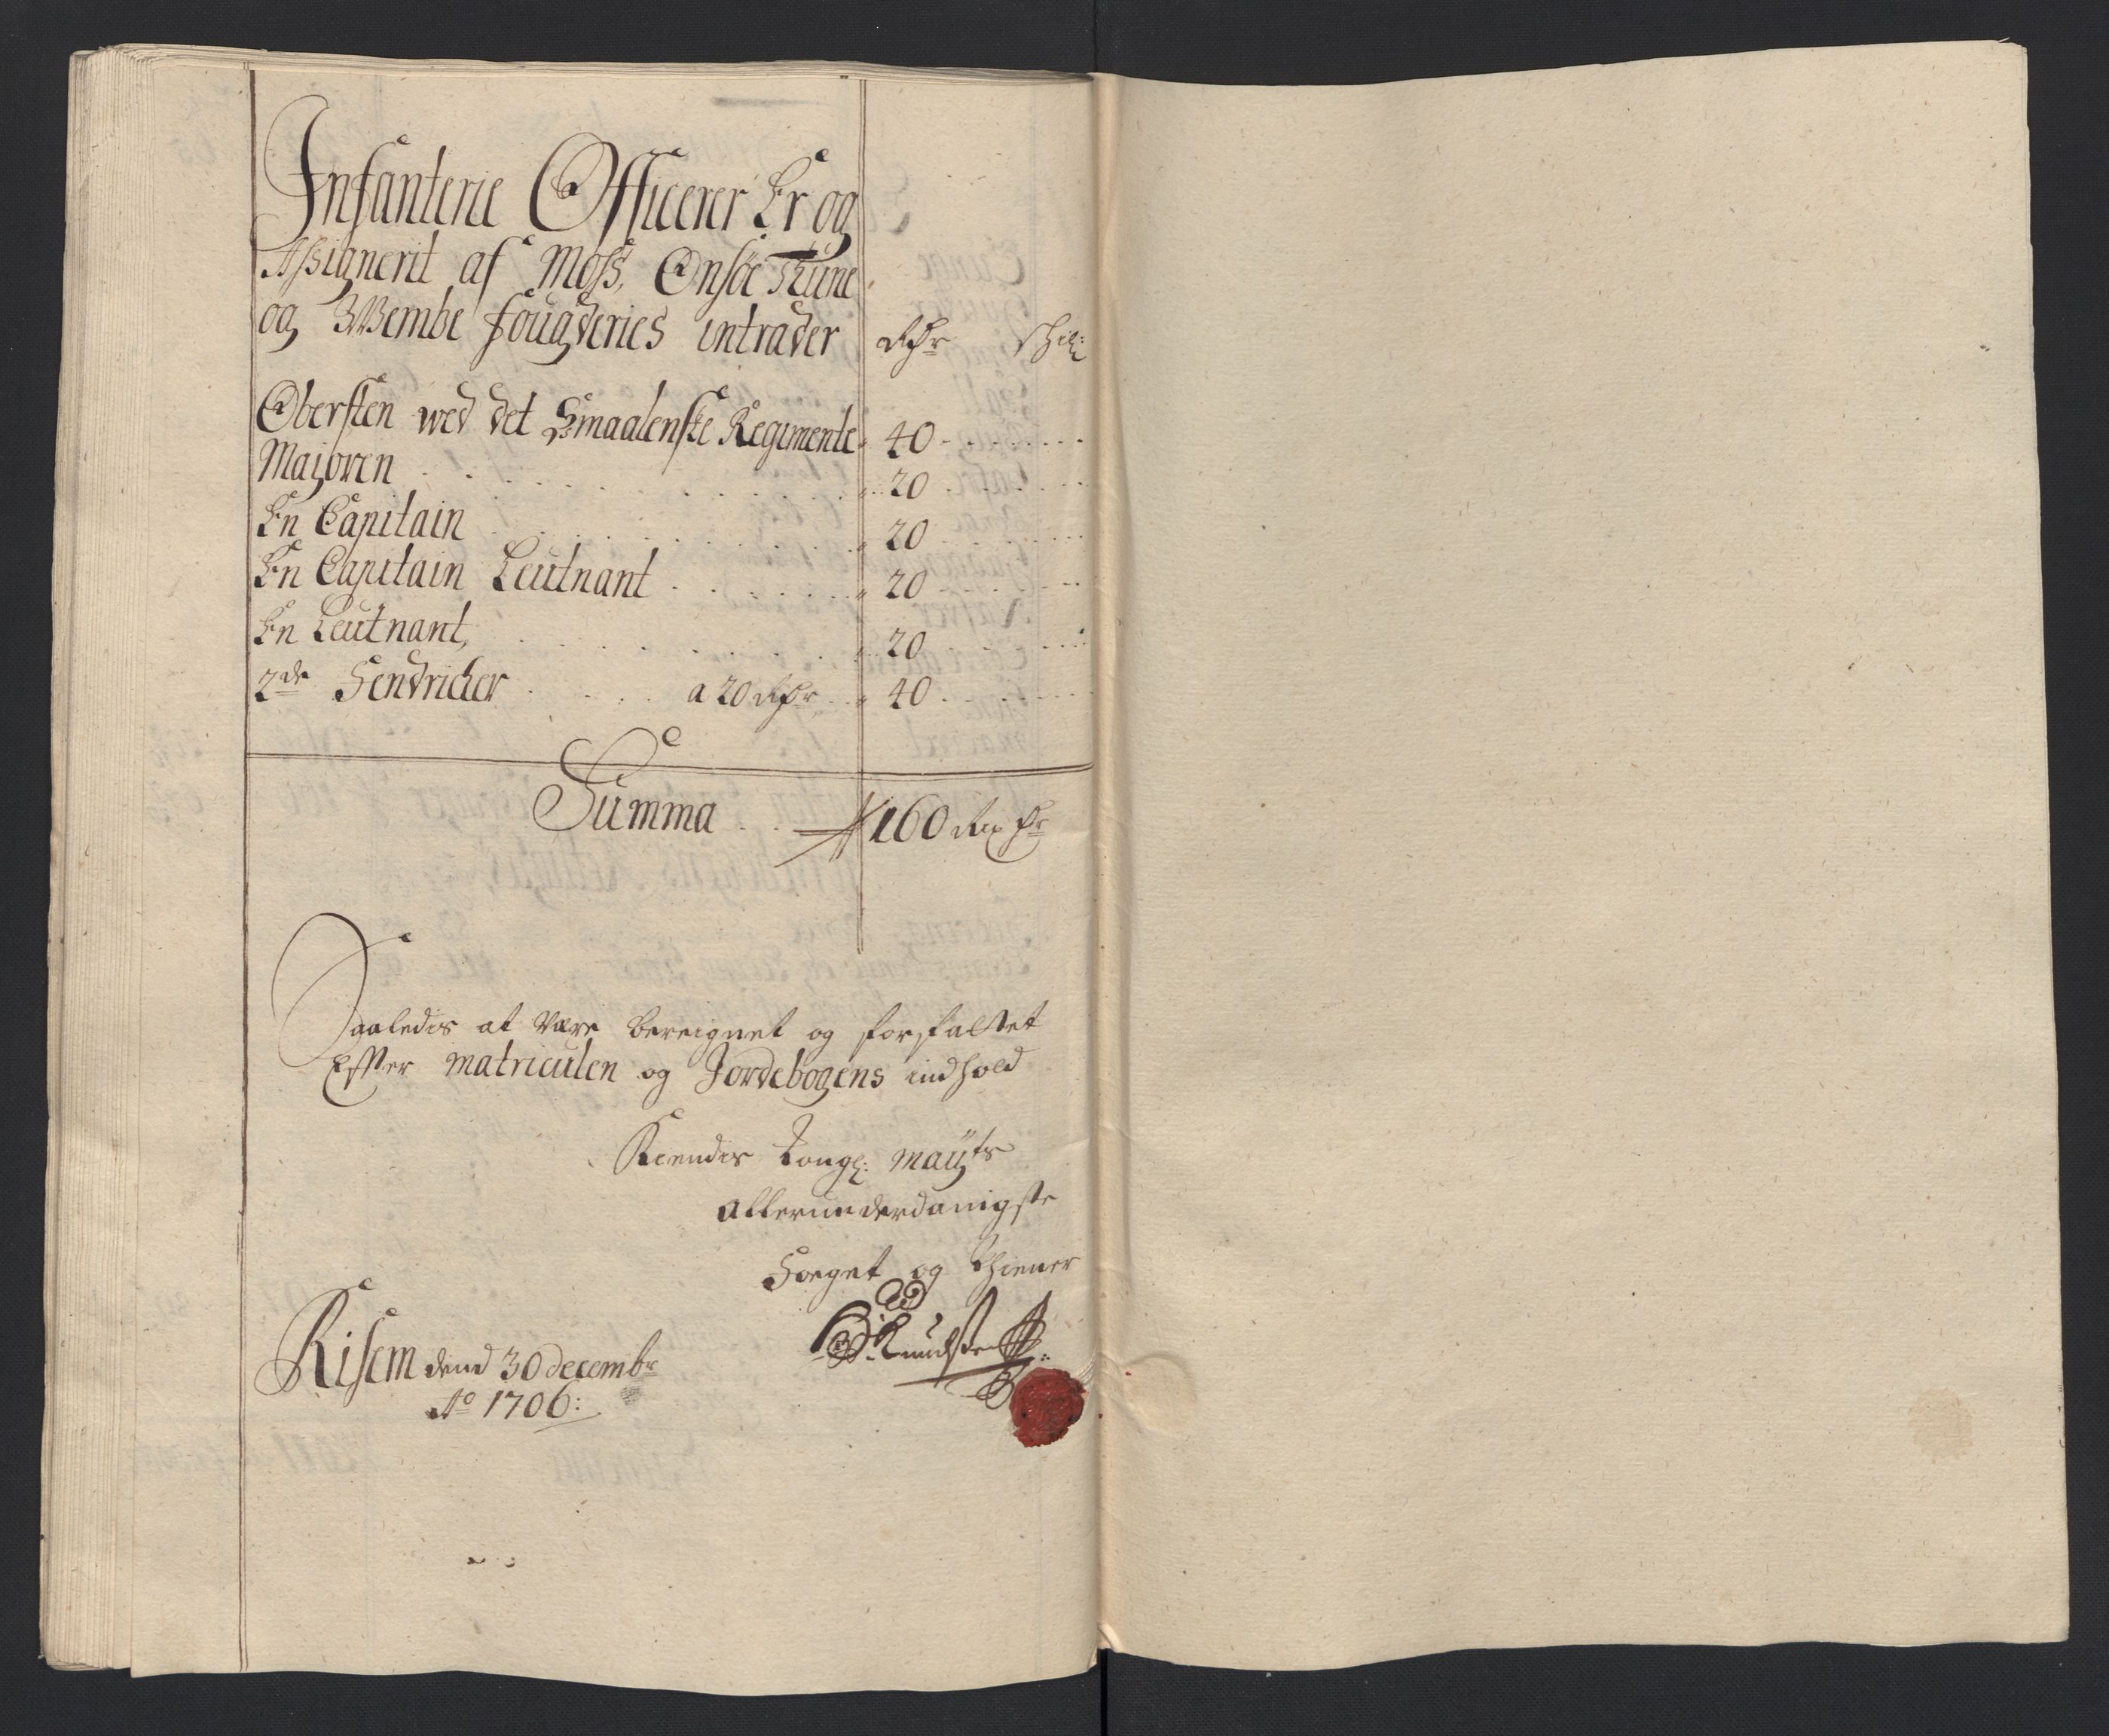 Infanterie Officerer Er og
Assignerit af Moss, Onsöe Thune
og WWembe fougderies intrader Rdr schil:
Obersten wed det Smaalenske Regimente 40
Majoren 20
En Capitain 20
En Capitain Leutnant 20
En Leutnant, 20
2de Fendricher a 20 Rdr 40
Summa 160 Rix dr
Saaledis at være bereignet og forfaldet
Effter matriculen og Jordebogens indhold
Kiendis Kongl: mayts
allerunderdanigste
Foeget og Thiener
Knudsen
Risem dend 30 decembr
Ao 1706: